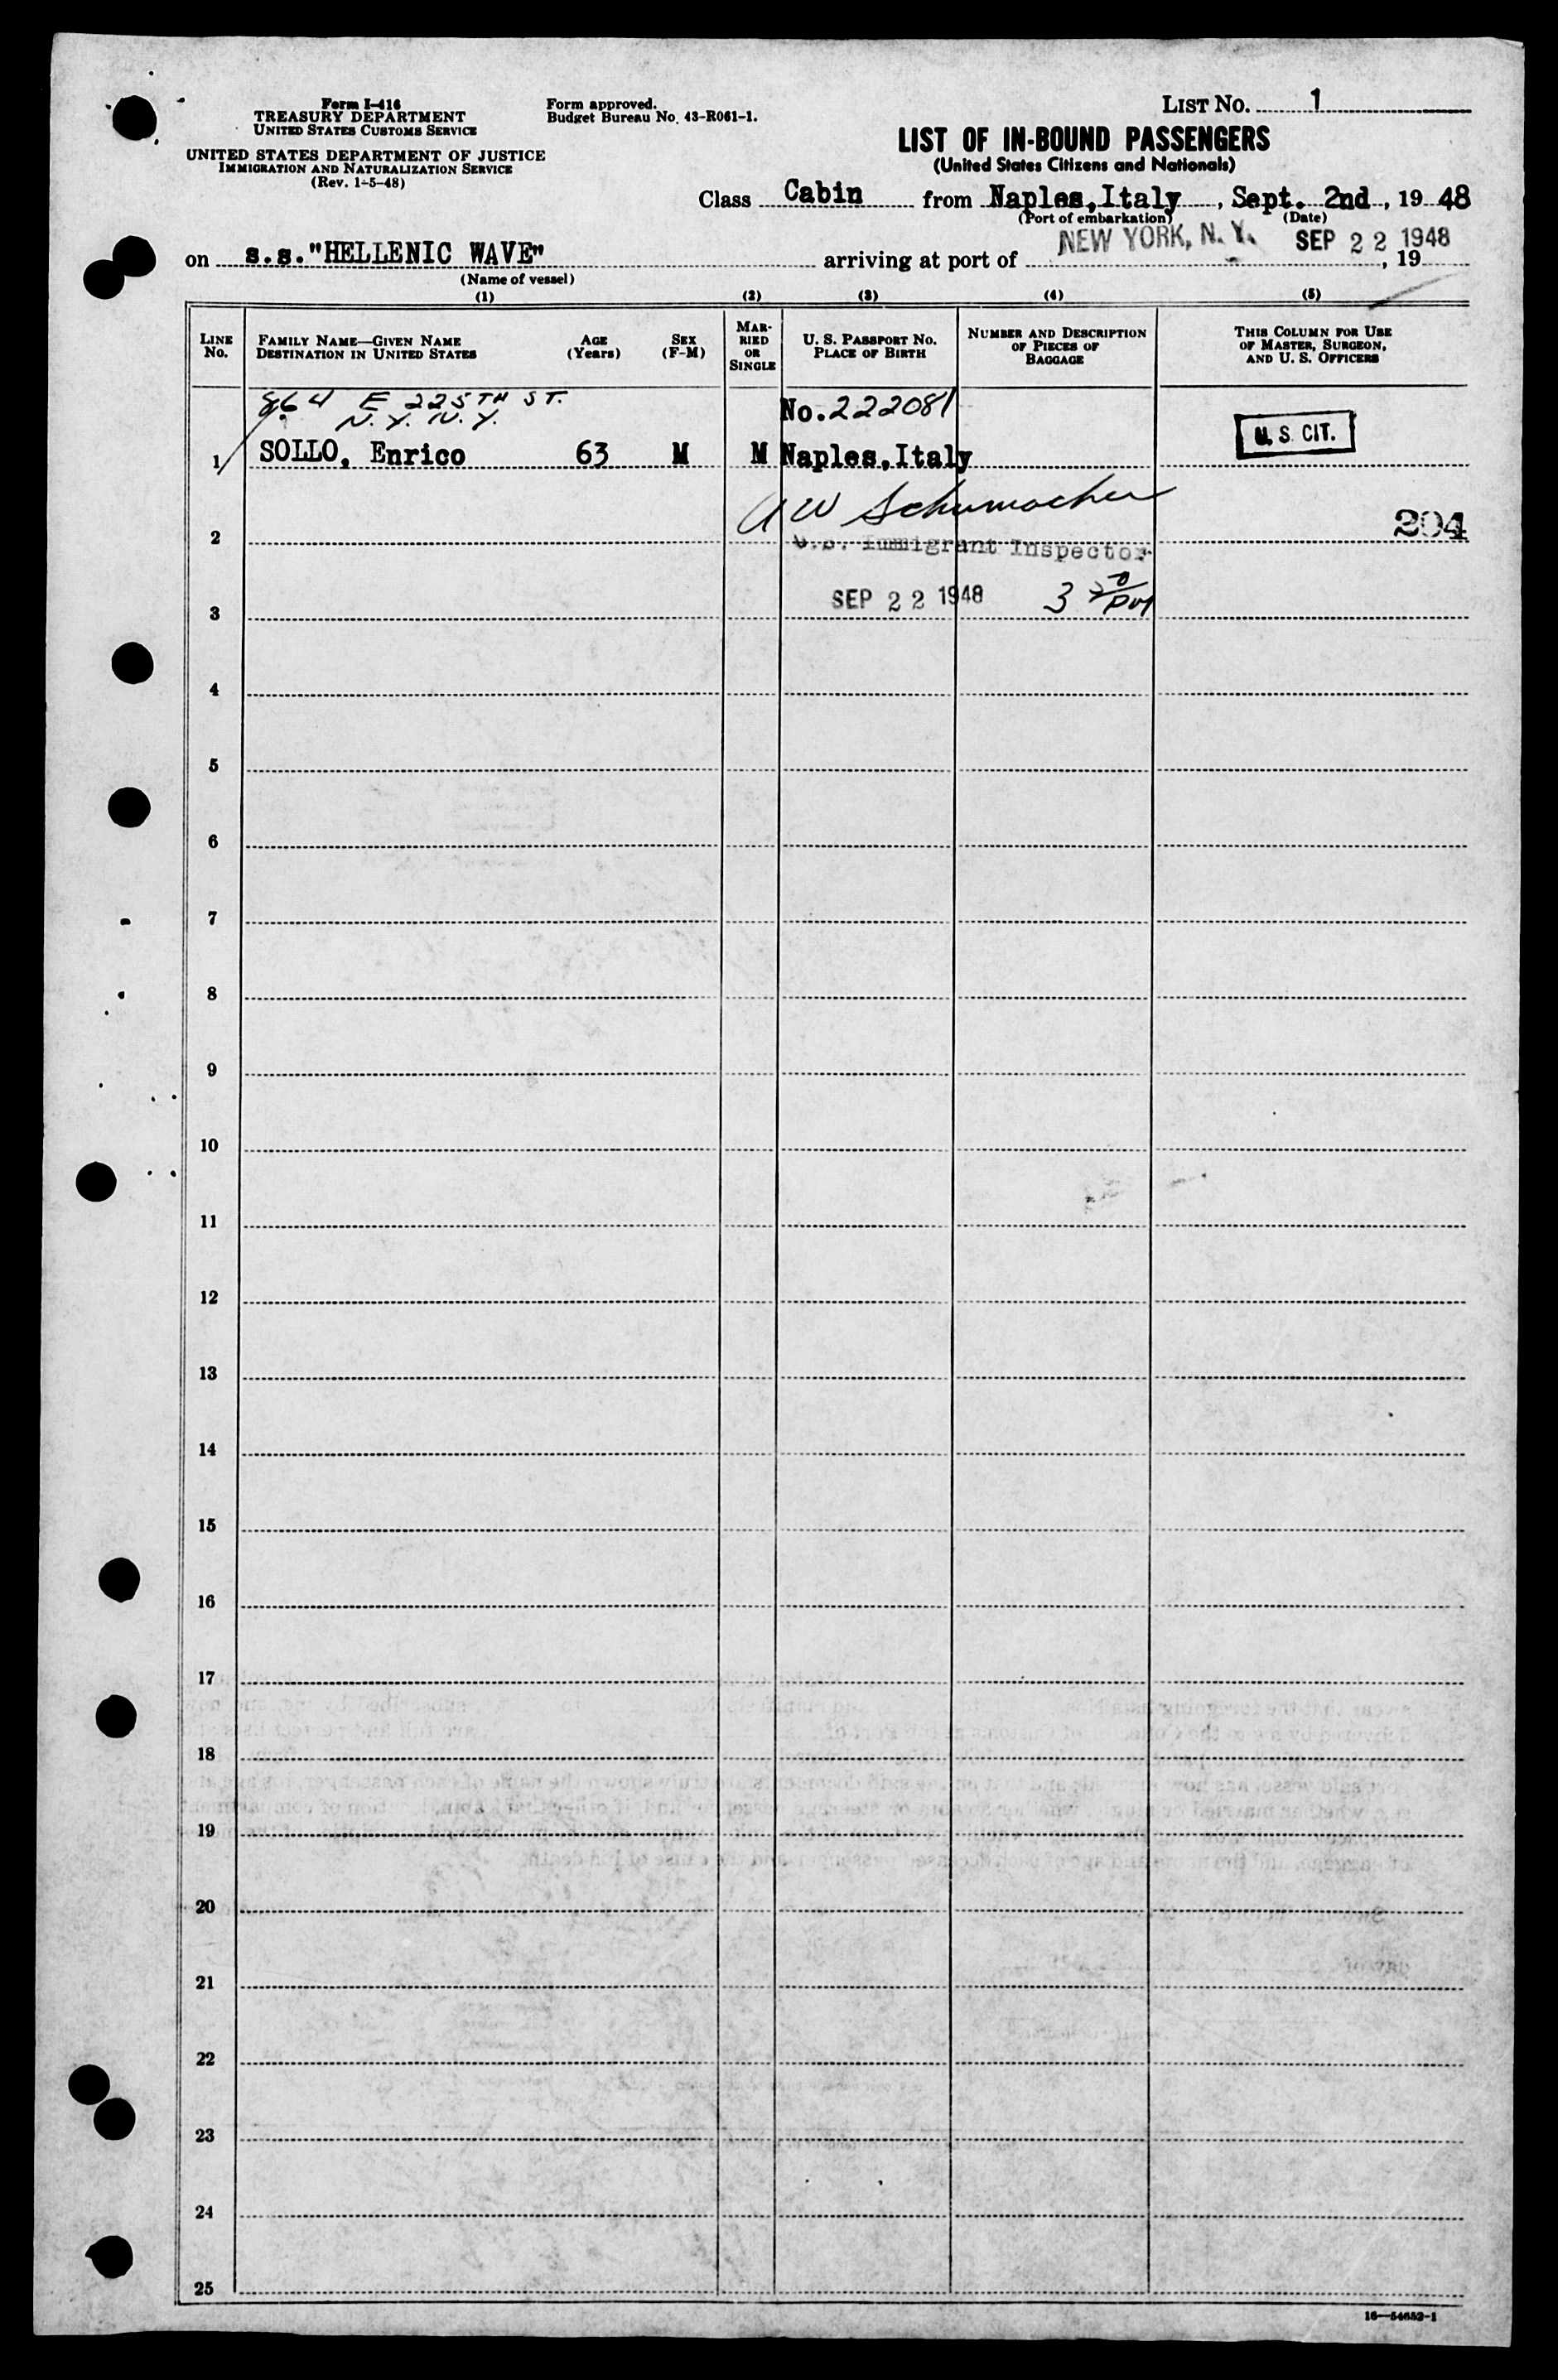 Form I-416
TREASURY DEPARTMENT
UNITED STATES CUSTOMS SERVICE
UNITED STATES DEPARTMENT OF JUSTICE
IMMIGRATION AND NATURALIZATION SERVICE
(Rev. 1-5-48)
Form approved.
Budget Bureau No. 43-R061-1.
LIST No. 1
LIST OF IN-BOUND PASSENGERS
(United States Citizens and Nationals)
Class Cabin from Naples, Italy, Sept. 2nd, 1948
(Port of embarkation) (Date)
on s.s. "HELLENIC WAVE" arriving at port of NEW YORK, N. Y. SEP 22 1948, 19
(Name of vessel)
(1) (2) (3) (4) (5)
LINE No.
FAMILY NAME—GIVEN NAME
DESTINATION IN UNITED STATES
AGE (Years)
SEX (F-M)
MARRIED OR SINGLE
U. S. PASSPORT No.
PLACE OF BIRTH
NUMBER AND DESCRIPTION OF PIECES OF BAGGAGE
THIS COLUMN FOR USE OF MASTER, SURGEON, AND U. S. OFFICERS
864 E 225TH ST.
N. Y. N. Y.
No. 222081
U. S. CIT.
1 SOLLO, Enrico 63 M M Naples, Italy
A W Schumacher
2 204
U.S. Immigrant Inspector
SEP 22 1948
3
4
5
6
7
8
9
10
11
12
13
14
15
16
17
18
19
20
21
22
23
24
25
16—54652-1